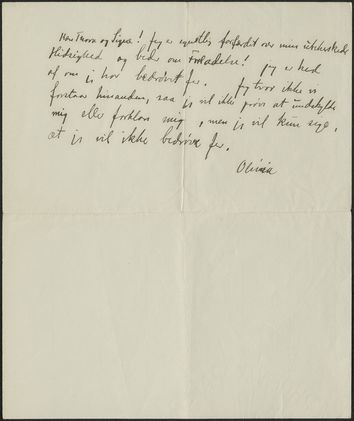 Kære Thora og Signe! Jeg er forfærdet over min
Hidsighed og beder om Forladelse! Jeg er ked
af om jeg har bedrøvet Jer. Jeg tror ikke vi
forstaar hinanden, saa jeg vil ikke prøve at undskylde
mig eller forklare mig, men jeg vil kun sige,
at jeg vil ikke bedrøve Jer.
Olivia